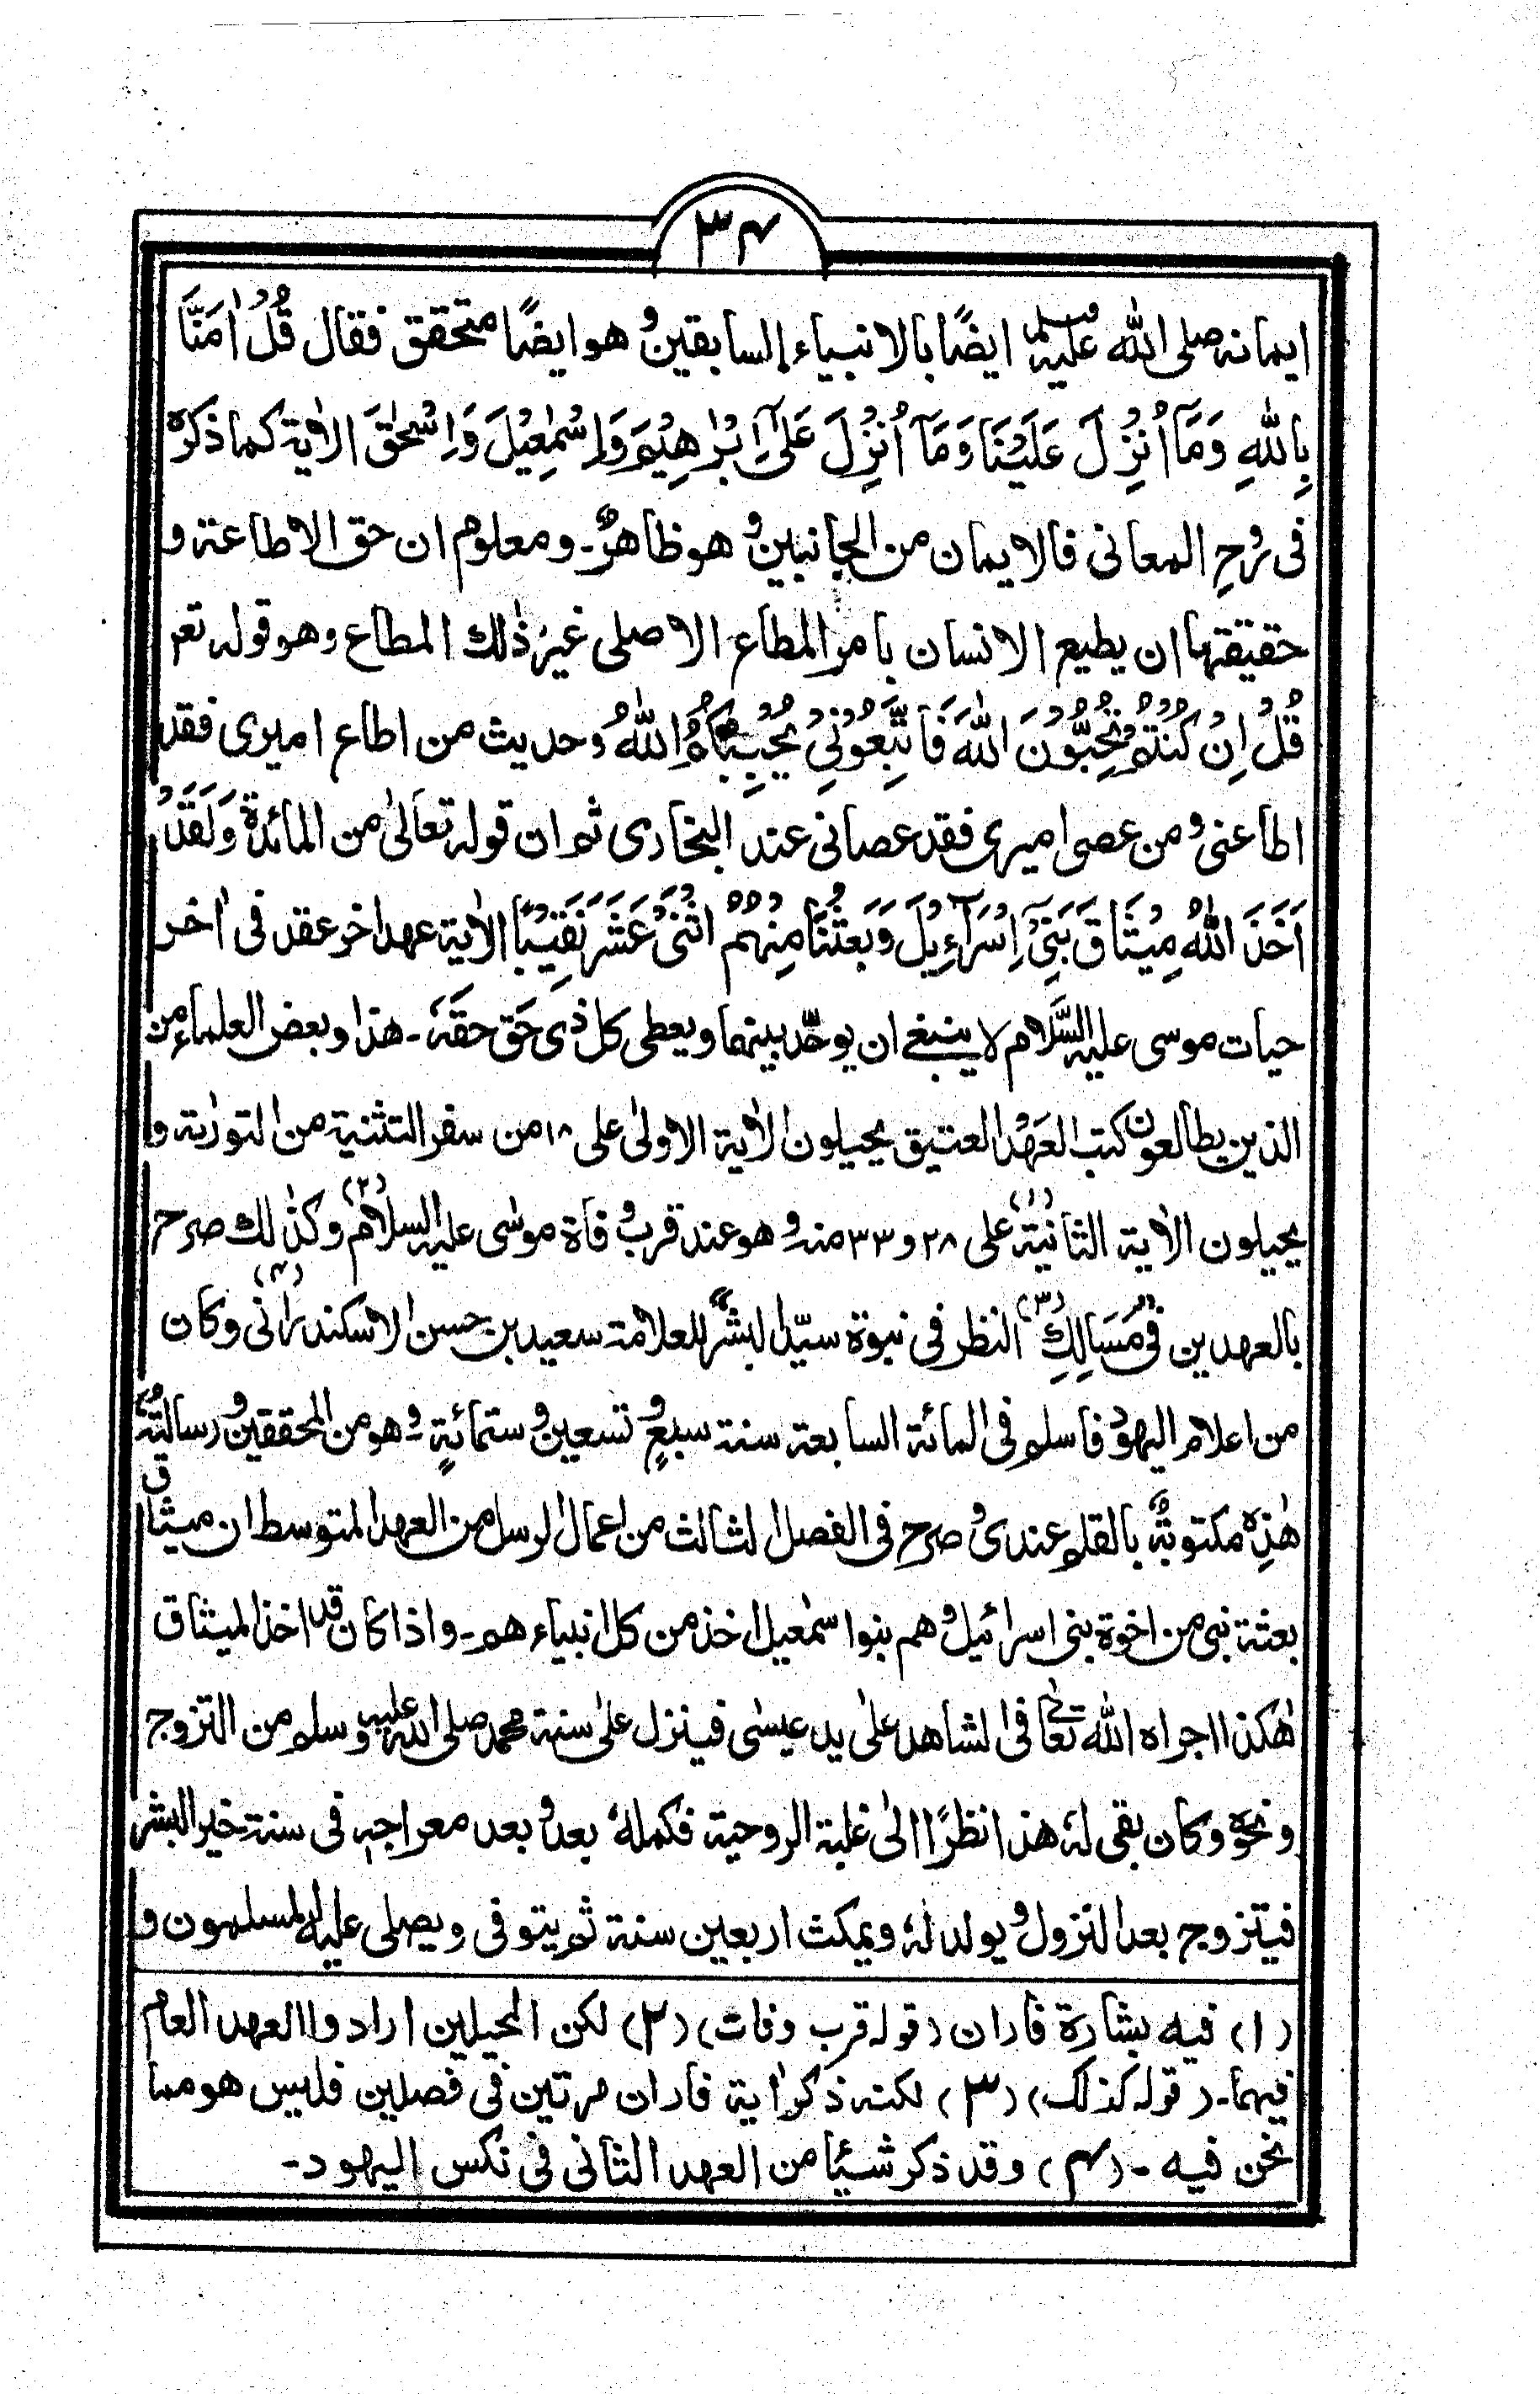 ٣٤
ايمانه صلى الله عليه وسلم ايضًا بالانبياء السابقين و هو ايضًا متحقق فقال قُلْ اٰمَنَّا
بِاللّٰهِ وَمَآ اُنْزِلَ عَلَيْنَا وَمَآ اُنْزِلَ عَلٰٓى اِبْرٰهِيْمَ وَاِسْمٰعِيْلَ وَاِسْحٰقَ الاٰية كما ذكره
فى رُوحِ المعانى فالايمان من الجانبين و هو ظاهرٌ۔ و معلوم ان حق الاطاعة و
حقيقتها ان يطيع الانسان بامر المطاع الاصلى غيرُ ذٰلك المطاع وهو قوله تعم
قُلْ اِنْ كُنْتُمْ تُحِبُّوْنَ اللّٰهَ فَاتَّبِعُوْنِيْ يُحْبِبْكُمُ اللّٰهُ وحديث من اطاع اميرى فقد
اطاعنى و من عصى اميرى فقد عصانى عند البخارى ثم ان قوله تعالىٰ من المائدة وَلَقَدْ
اَخَذَ اللّٰهُ مِيْثَاقَ بَنِيْٓ اِسْرَآءِيْلَ وَبَعَثْنَا مِنْهُمُ اثْنَيْ عَشَرَ نَقِيْبًا الاٰية عهد اخر عقد فى اٰخر
حيات موسى عليه السَّلام لا ينبغى ان يوحّد بينهما ويعطى كل ذى حَق حقَهٗ۔ هذا وبعض العلماء من
الذين يطالعون كتب العَهْد العتيق يحيلون الاٰية الاولىٰ على ١٨ من سفر التثنية من التورٰىة و
يحيلون الاٰية الثانية (١) على ٢٨ و ٣٣ منه و هو عند قرب وفاة موسٰى عليه السلام (٢) وكذٰلك صرح
بالعهدين فى مَسَالِكِ (٣) النظر فى نبوة سيّد البشر للعلامة سعيد بن حسن الاسكندرانى (٤) وكان
من اعلام اليهود فاسلم فى المائة السابعة سنة سبعٍ و تسعين و ستمائةٍ و هو من المحققين و رسالتهٗ
هٰذِه مكتوبةٌ بالقلم عندى و صرح فى الفصل الثالث من اعمال الرسل من العهد المتوسط ان ميثاق
بعثة نبى من اخوة بنى اسرائيل و هم بنوا سمٰعيل اخذ من كل انبياء هم۔ واذا كان قد اخذ الميثاق
هٰكذا اجراه الله تعالىٰ فى الشاهد علٰى يد عيسٰى فينزل علٰى سنة محمد صلى الله عليه وسلم من التزوج
ونحوه وكان بقى لهٗ هذا نظرًا الىٰ غلبة الروحية فكملهٗ بعدُ و بعد معراجه فى سنة خير البشر
فيتزوج بعد النزول و يولد لهٗ ويمكث اربعين سنة ثم يتوفى ويصلى عليه المسلمون و
(١) فيه بشارة فاران (قوله قرب وفات) (٢) لكن المحيلين ارادوا العهد العام
فيهما۔ (قوله كذلك) (٣) لكنه ذكر اٰية فاران مرتين فى فصلين فليس هو مما
نحن فيه ۔ (٤) وقد ذكر شيئا من العهد الثانى فى نكس اليهود۔